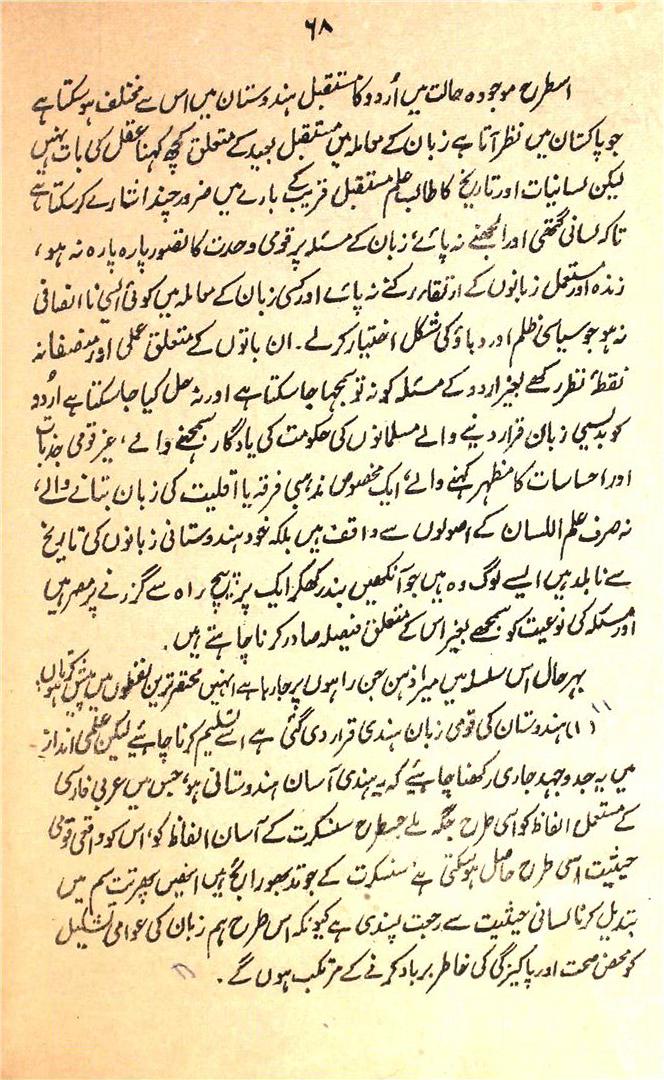 ۶۸
اسطرح موجودہ حالت میں اُردو کا مستقبل ہندوستان میں اس سے مختلف ہو سکتا ہے
جو پاکستان میں نظر آتا ہے زبان کے معاملہ میں مستقبل بعید کے متعلق کچھ کہنا عقل کی بات نہیں
لیکن لسانیات اور تاریخ کا طالب علم مستقبل قریب کے بارے میں ضرور چند اشارے کر سکتا ہے
تاکہ لسانی گتھی اور الجھنے نہ پائے، زبان کے مسئلہ پر قومی وحدت کا تصور پارہ پارہ نہ ہو،
زندہ اور مستعمل زبانوں کے ارتقار رکنے نہ پائے اور کسی زبان کے معاملہ میں کوئی ایسی ناانصافی
نہ ہو جو سیاسی ظلم اور دباؤ کی شکل اختیار کر لے۔ ان باتوں کے متعلق علمی اور منصفانہ
نقطۂ نظر رکھے بغیر اردو کے مسئلہ کو نہ تو سمجھا جا سکتا ہے اور نہ حل کیا جا سکتا ہے اُردو
کو بدیسی زبان قرار دینے والے مسلمانوں کی حکومت کی یادگار سمجھنے والے، غیر قومی جذبات
اور احساسات کا مظہر کہنے والے، ایک مخصوص مذہبی فرقہ یا اقلیت کی زبان بتانے والے،
نہ صرف علم اللسان کے اصولوں سے واقف ہیں بلکہ خود ہندوستانی زبانوں کی تاریخ
سے نابلد ہیں ایسے لوگ وہ ہیں جو آنکھیں بند رکھکر ایک پر پیچ راہ سے گزرنے پر مصر ہیں
اور مسئلہ کی نوعیت کو سمجھے بغیر اس کے متعلق فیصلہ صادر کرنا چاہتے ہیں۔
بہر حال اس سلسلہ میں میرا ذہن جن راہوں پر جا رہا ہے انہیں مختصر ترین لفظوں میں پیش کرتا ہوں
(۱) ہندوستان کی قومی زبان ہندی قرار دی گئی ہے اسے تسلیم کرنا چاہئے لیکن علمی انداز
میں یہ جدوجہد جاری رکھنا چاہئے کہ یہ ہندی آسان ہندوستانی ہو، جس میں عربی فارسی
کے مستعمل الفاظ کو اسی طرح جگہ ملے جسطرح سنسکرت کے آسان الفاظ کو، اس کو واقعی قومی
حیثیت اسی طرح حاصل ہو سکتی ہے سنسکرت کے جو تدبھو رائج ہیں انھیں پھر تت سم میں
تبدیل کرنا لسانی حیثیت سے رجعت پسندی ہے کیونکہ اس طرح ہم زبان کی عوامی تشکیل
کو محض صحت اور پاکیزگی کی خاطر برباد کرنے کے مرتکب ہوں گے۔